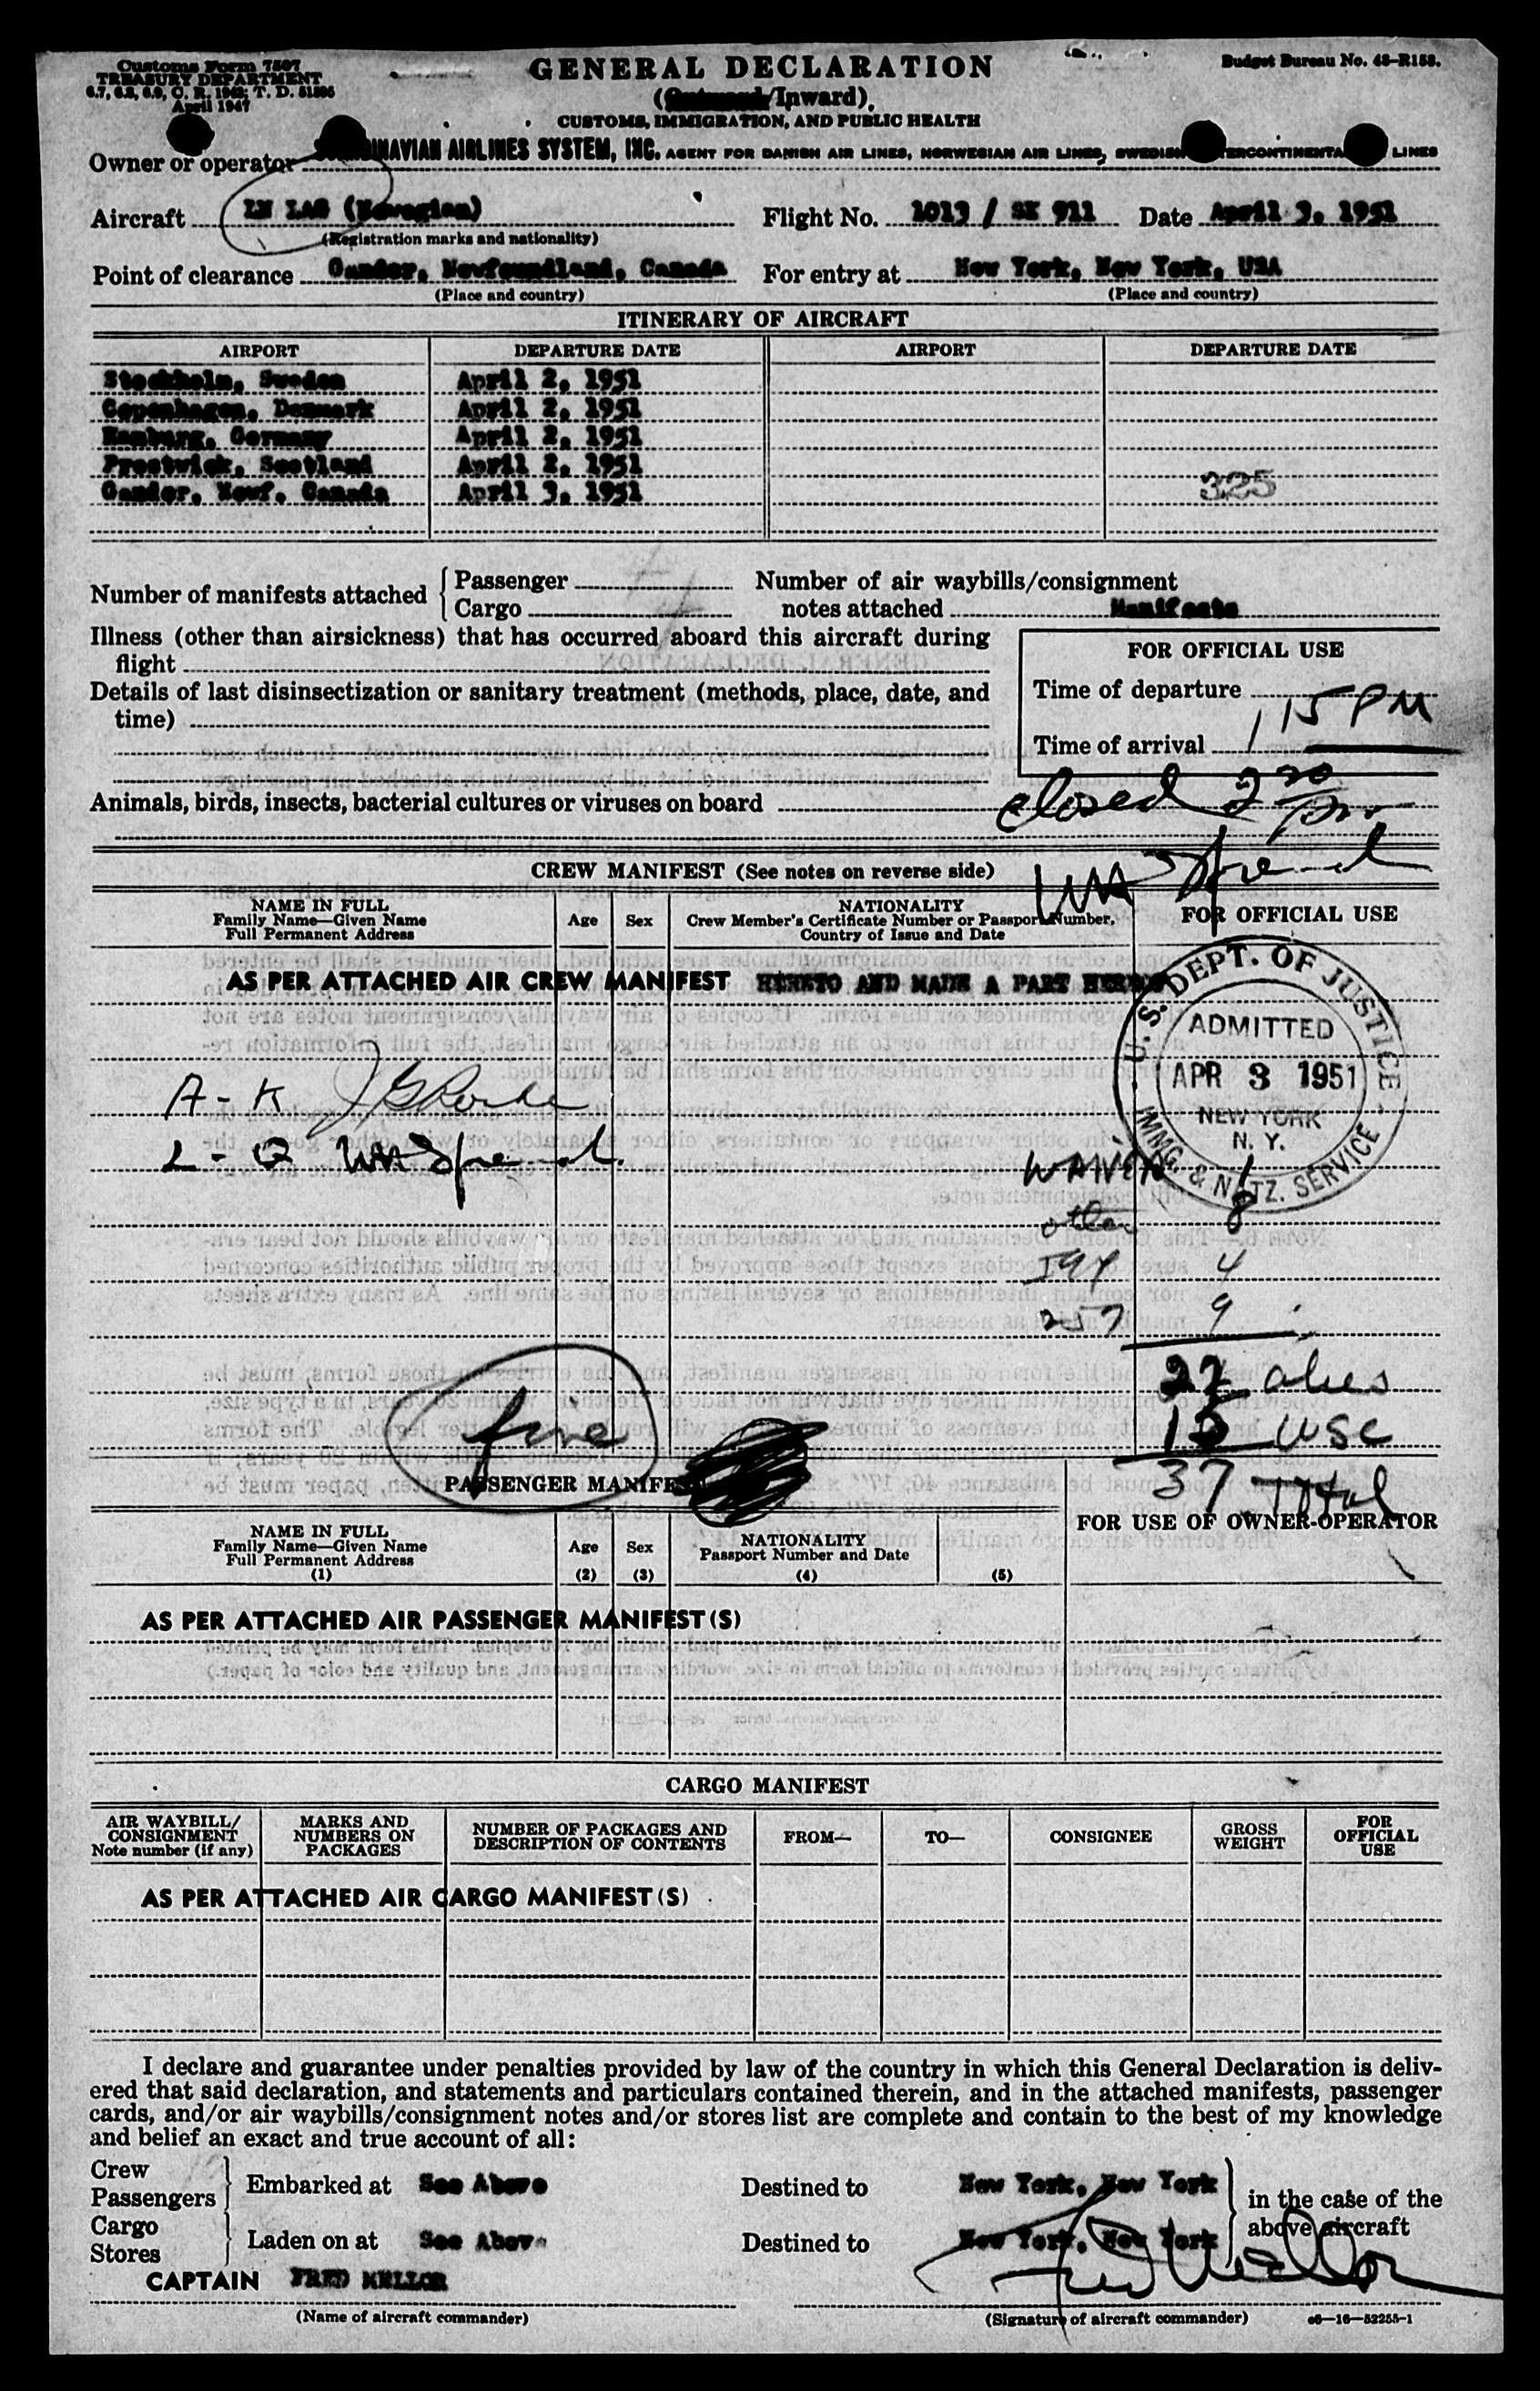 Customs Form 7507
TREASURY DEPARTMENT
6.7, 6.8, 6.9, C. R. 1943; T. D. 51895
April 1947
GENERAL DECLARATION
(Outward/Inward)
CUSTOMS, IMMIGRATION, AND PUBLIC HEALTH
Budget Bureau No. 48-R158.
Owner or operator INAVIAN AIRLINES SYSTEM, INC. AGENT FOR DANISH AIR LINES, NORWEGIAN AIR LINES, SWEDISH TERCONTINENTA LINES
Aircraft (Norwegian) Flight No. 1013 / SK 911 Date April 3, 1951
(Registration marks and nationality)
Point of clearance Gander, Newfoundland, Canada For entry at New York, New York, USA
(Place and country) (Place and country)
ITINERARY OF AIRCRAFT
AIRPORT DEPARTURE DATE AIRPORT DEPARTURE DATE
Stockholm, Sweden April 2, 1951
Copenhagen, Denmark April 2, 1951
Hamburg, Germany April 2, 1951
Prestwick, Scotland April 2, 1951
Gander, Newf. Canada April 3, 1951 325
Number of manifests attached { Passenger
Cargo
Number of air waybills/consignment
notes attached Manifests
Illness (other than airsickness) that has occurred aboard this aircraft during
flight
Details of last disinsectization or sanitary treatment (methods, place, date, and
time)
FOR OFFICIAL USE
Time of departure
Time of arrival 1 15 PM
Animals, birds, insects, bacterial cultures or viruses on board
closed 2 20 pm
CREW MANIFEST (See notes on reverse side)
NAME IN FULL
Family Name—Given Name
Full Permanent Address
Age Sex
NATIONALITY
Crew Member's Certificate Number or Passport Number,
Country of Issue and Date
FOR OFFICIAL USE
AS PER ATTACHED AIR CREW MANIFEST HERETO AND MADE A PART HEREOF
U. S. DEPT. OF JUSTICE
ADMITTED
APR 3 1951
NEW YORK
N. Y.
IMMG. & NATZ. SERVICE
A - K
L - Q
WAIVER 1
other 8
I94 4
257 9
22 alies
15 USC
37 Total
five
PASSENGER MANIFE
NAME IN FULL
Family Name—Given Name
Full Permanent Address
(1)
Age
(2)
Sex
(3)
NATIONALITY
Passport Number and Date
(4) (5)
FOR USE OF OWNER-OPERATOR
AS PER ATTACHED AIR PASSENGER MANIFEST(S)
CARGO MANIFEST
AIR WAYBILL/
CONSIGNMENT
Note number (if any)
MARKS AND
NUMBERS ON
PACKAGES
NUMBER OF PACKAGES AND
DESCRIPTION OF CONTENTS
FROM— TO— CONSIGNEE
GROSS
WEIGHT
FOR
OFFICIAL
USE
AS PER ATTACHED AIR CARGO MANIFEST(S)
I declare and guarantee under penalties provided by law of the country in which this General Declaration is deliv-
ered that said declaration, and statements and particulars contained therein, and in the attached manifests, passenger
cards, and/or air waybills/consignment notes and/or stores list are complete and contain to the best of my knowledge
and belief an exact and true account of all:
Crew
Passengers } Embarked at See Above Destined to New York, New York
Cargo
Stores } Laden on at See Above Destined to New York, New York
in the case of the
above aircraft
CAPTAIN FRED MELLOR
(Name of aircraft commander) (Signature of aircraft commander) 16—52255-1